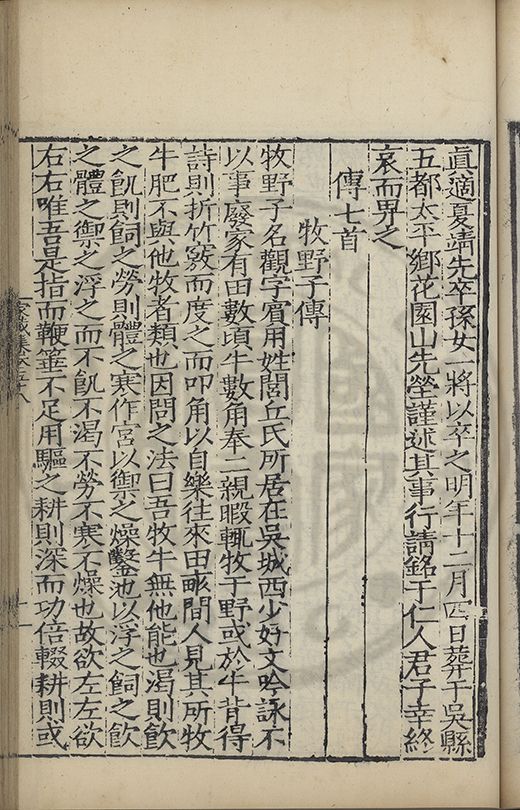 真適夏靖先卒孫女一將以卒之明年十二月四日葬于吳縣
五都太平鄉花園山先塋謹述其事行請銘于仁人君子幸終
哀而畀之
傳七首
牧野子傳
牧野子名觀字賔用姓閭丘氏所居在吳城西少好文吟詠不
以事廢家有田數頃牛數角奉二親暇輒牧于野或於牛背得
詩則折竹竅而度之而叩角以自樂往來田畝間人見其所牧
牛肥不與他牧者類也因問之法曰吾牧牛無他能也渴則飲
之飢則飼之勞則體之寒作宮以禦之燥鑿池以浮之飼之飲
之體之禦之浮之而不飢不渴不勞不寒不燥也故欲左左欲
右右唯吾是指而鞭箠不足用驅之耕則深而功倍輟耕則或
家藏集卷五八